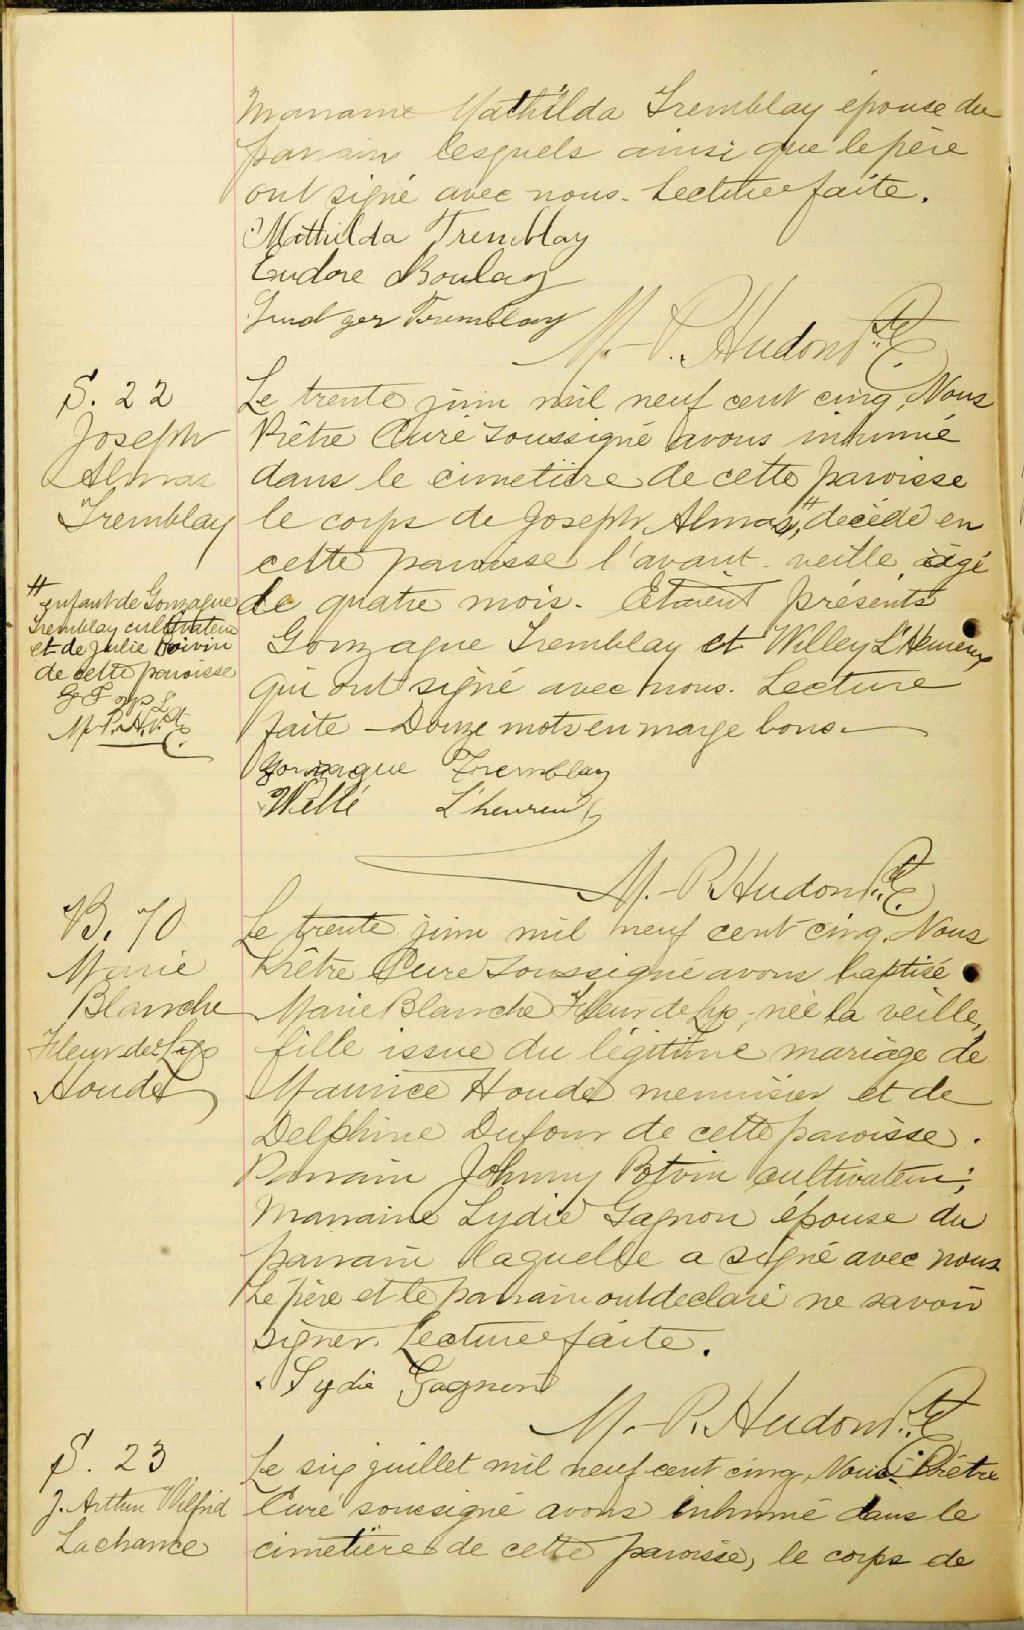 Marraine Mathilda Tremblay épouse du
parrain lesquels ainsi que le père
ont signé avec nous. Lecture faite.
Mathilda Tremblay
Eudore Boulay
Tremblay
M.-P. Hudon Ptre C.
S. 22
Joseph
Almas
Tremblay
Le trente juin mil neuf cent cinq, Nous
Prêtre Curé soussigné avons inhumé
dans le cimetière de cette paroisse
le corps de Joseph Almas,# décédé en
cette paroisse l'avant-veille âgé
de quatre mois. Étaient présents
Gonzague Tremblay et Willey L'Heureux
qui ont signé avec nous. Lecture
faite - Douze mots en marge bons.
# enfant de Gonzague
Tremblay cultivateur
et de Julie Boivin
de cette paroisse
M.P.H. Ptre C.
Gonzague Tremblay
Willé L'heureux
M.-P. Hudon Ptre C.
B. 70
Marie
Blanche
Fleur des Lys
Houde
Le trente juin mil neuf cent cinq, Nous
Prêtre Curé soussigné avons baptisé
Marie Blanche Fleur de Lys, née la veille,
fille issue du légitime mariage de
Maurice Houde menuisier et de
Delphine Dufour de cette paroisse.
Parrain Johnny Potvin cultivateur;
Marraine Lydie Gagnon épouse du
parrain laquelle a signé avec nous
Le père et le parrain ont déclaré ne savoir
signer. Lecture faite.
Lydie Gagnon
M.-P. Hudon Ptre C.
S. 23
J. Arthur Wilfrid
Lachance
Le six juillet mil neuf cent cinq, Nous Prêtre
Curé soussigné avons inhumé dans le
cimetière de cette paroisse, le corps de